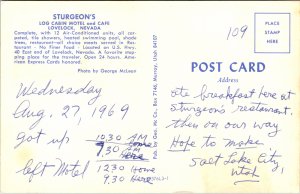 STURGEON'S
LOG CABIN MOTEL and CAFE
LOVELOCK, NEVADA
Complete, with 12 Air-Conditioned units, all car-
peted, tile showers, heated swimming pool, shade
trees, restaurant—all choice meats served in Res-
taurant - No Finer food - Located on U.S. Hwy.
40 East end of Lovelock, Nevada. A favorite stop-
ping place for the traveler. Open 24 hours.
American Express Cards honored.
Photo by George McLean
Wednesday
Aug. 27, 1969
got up 10:30 AM Home
9.30 AM here
left Motel 12:30 Home
9.30 Here
Pub. by Gen. Pub. Co., Box 7748, Murray, Utah 84107
109
PLACE
STAMP
HERE
POST CARD
Address
ate breakfast here at
Sturgeon's restaurant.
then on our way
Hope to make
Salt Lake City,
Utah